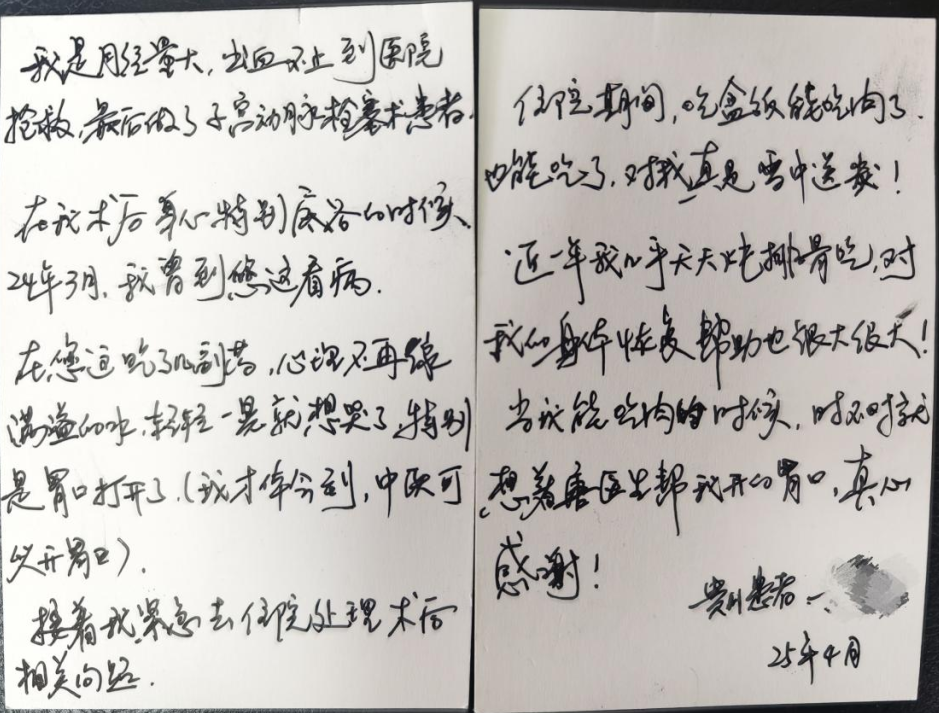 我是月经量大，出血不止到医院
抢救，最后做了子宫动脉栓塞术患者.
在我术后身心特别底谷的时候，
24年3月，我曾到您这看病.
在您这吃了几副药，心理不再像
满溢的水，轻轻一晃就想哭了，特别
是胃口打开了.（我才体会到，中医可
以开胃口）.
接着我紧急去住院处理术后
相关问题.
住院期间，吃盒饭能吃肉了.
也能吃了，对我真是雪中送炭！
近一年我几乎天天炖排骨吃，对
我的身体恢复帮助也很大很大！
当我能吃肉的时候，时不时就
想着唐医生帮我开的胃口，真心
感谢！
贵州患者
25年4月